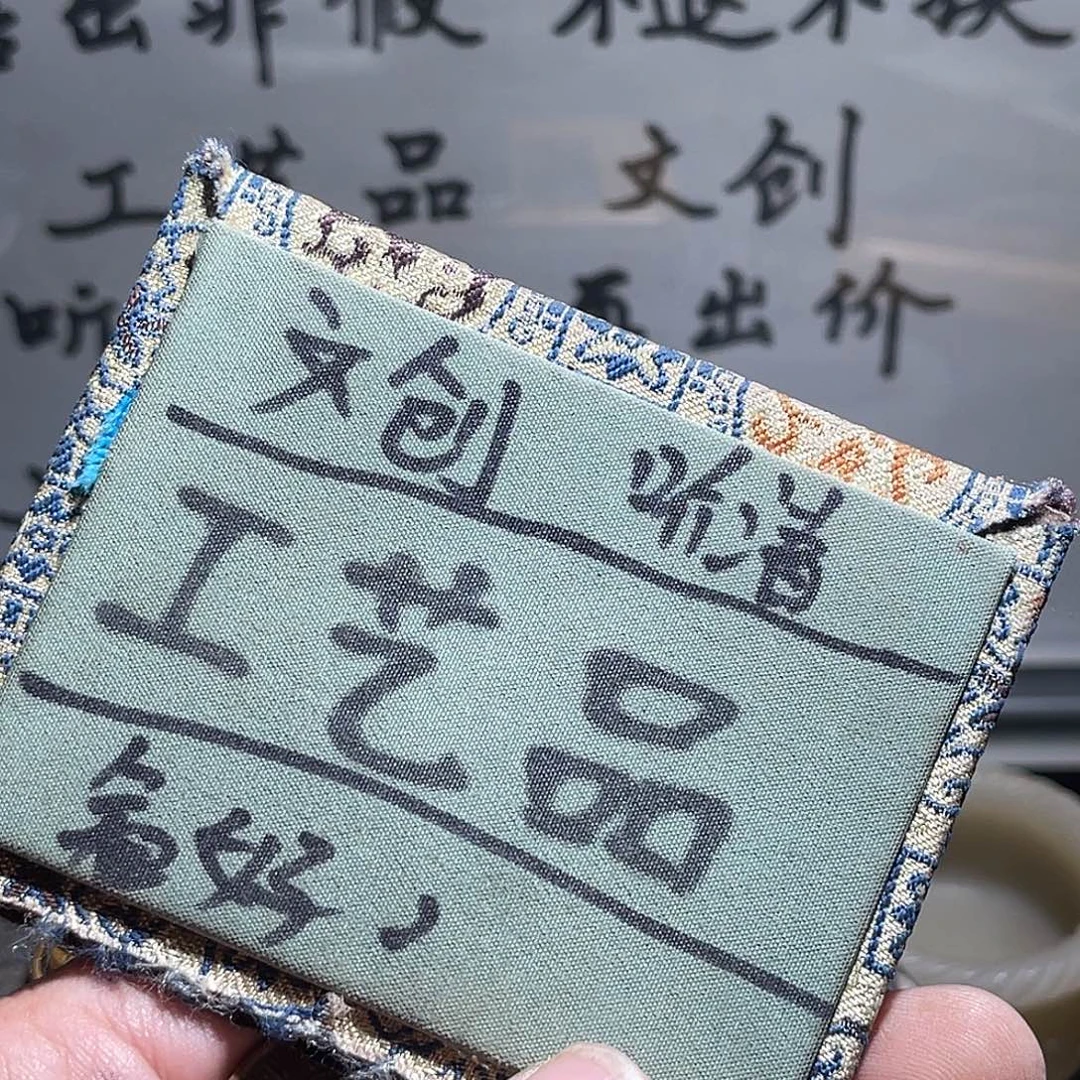 出非假 不退不换
工艺品 文创
听 再出价
文创 听清
工艺品
看好